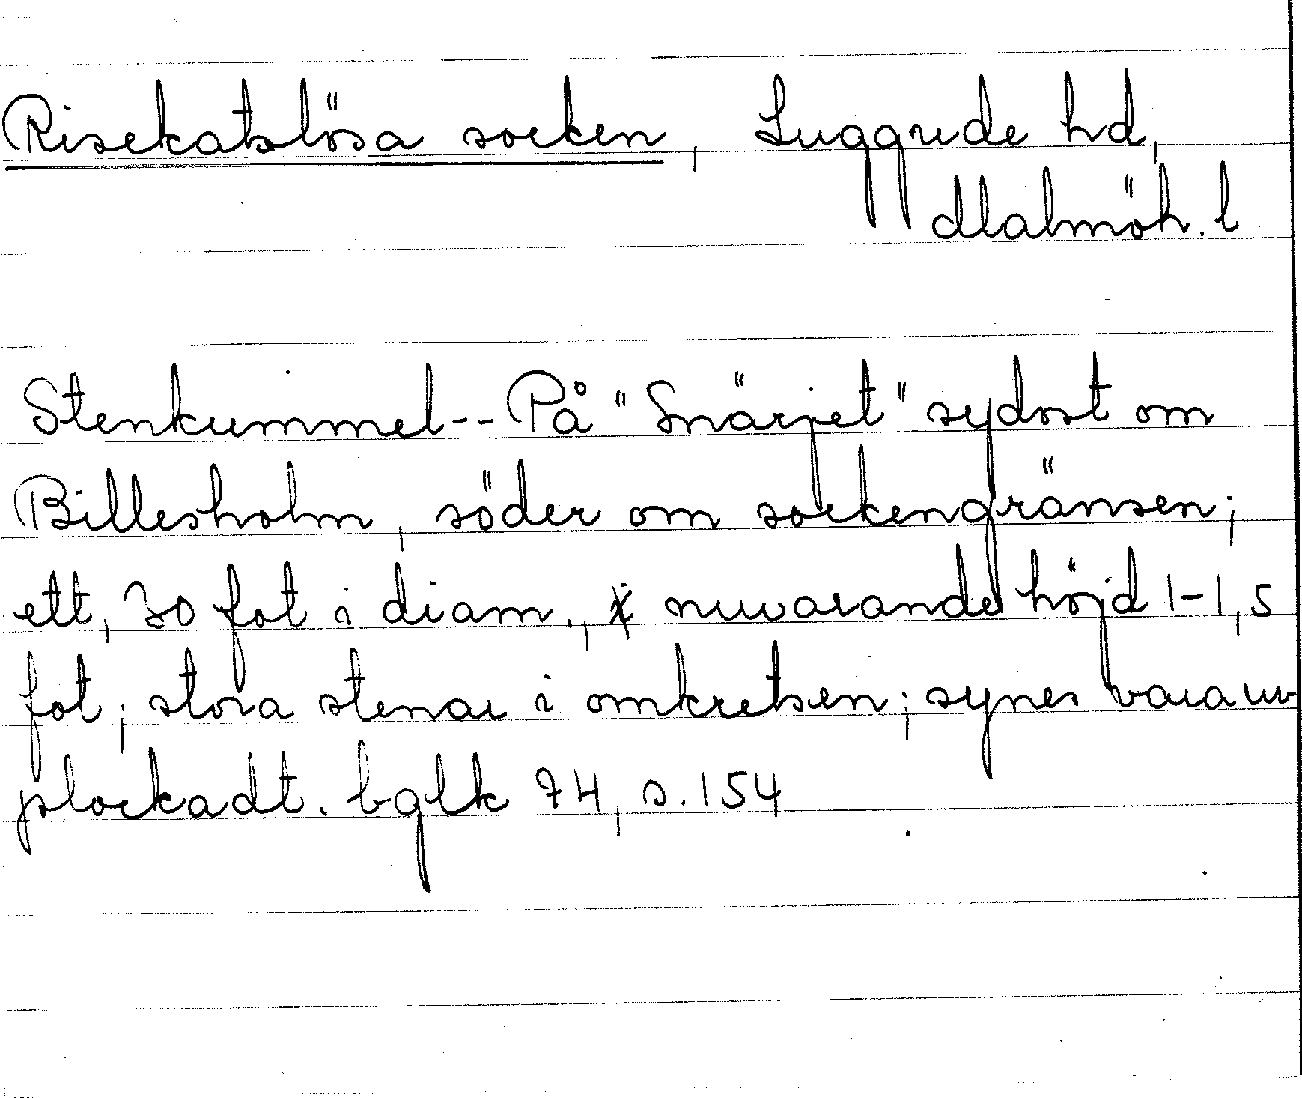 Risekatslösa socken, Luggude hd,
Malmöh. l
Stenkummel-- På "Snärjet" sydost om
Billesholm, söder om sockengränsen;
ett, 30 fot i diam., nuvarande höjd 1-1,5
fot; stora stenar i omkretsen; synes vara ur
plockadt. bglk 74, s. 154